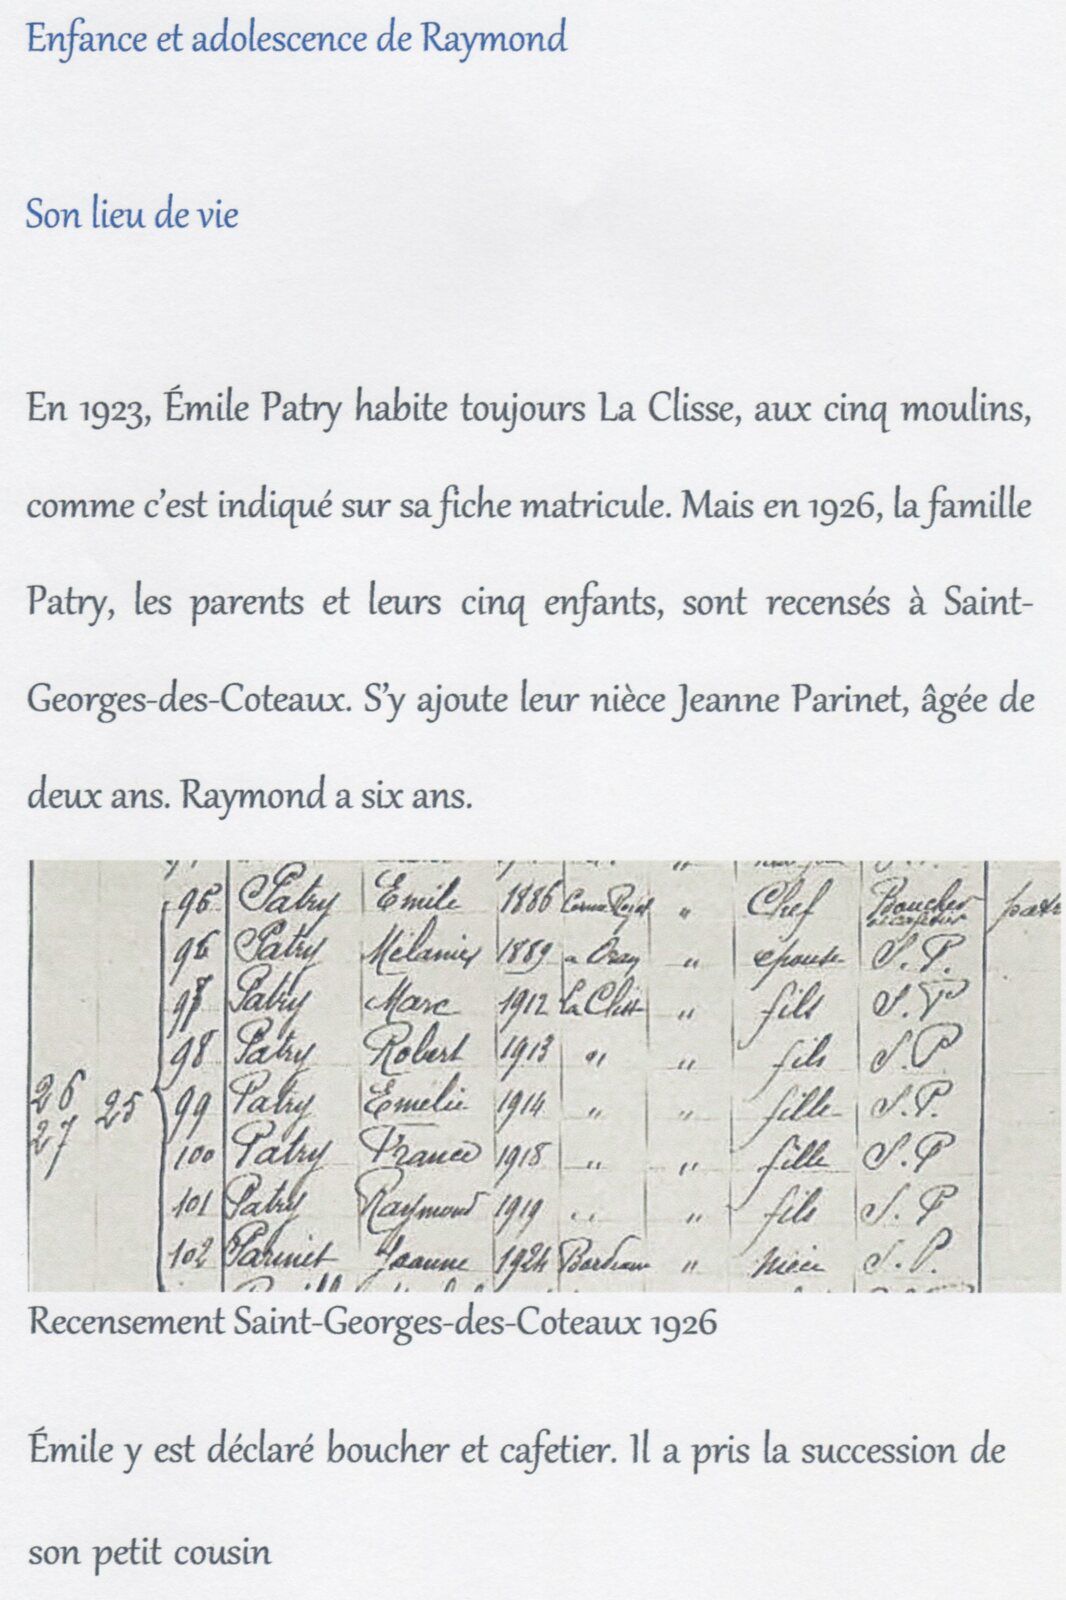 Enfance et adolescence de Raymond
Son lieu de vie
En 1923, Émile Patry habite toujours La Clisse, aux cinq moulins,
comme c’est indiqué sur sa fiche matricule. Mais en 1926, la famille
Patry, les parents et leurs cinq enfants, sont recensés à Saint-
Georges-des-Coteaux. S’y ajoute leur nièce Jeanne Parinet, âgée de
deux ans. Raymond a six ans.
95 Patry Emile 1886 " Chef Boucher
96 Patry Mélanie 1889 " épouse S.P.
97 Patry Marc 1912 La Clisse " fils S.P
98 Patry Robert 1913 " " fils S.P
26 25 99 Patry Emelie 1914 " " fille S.P.
27 100 Patry France 1918 " " fille S.P
101 Patry Raymond 1919 " " fils S.P
102 Parinet Jeanne 1924 Bordeaux " nièce S.P.
Recensement Saint-Georges-des-Coteaux 1926
Émile y est déclaré boucher et cafetier. Il a pris la succession de
son petit cousin